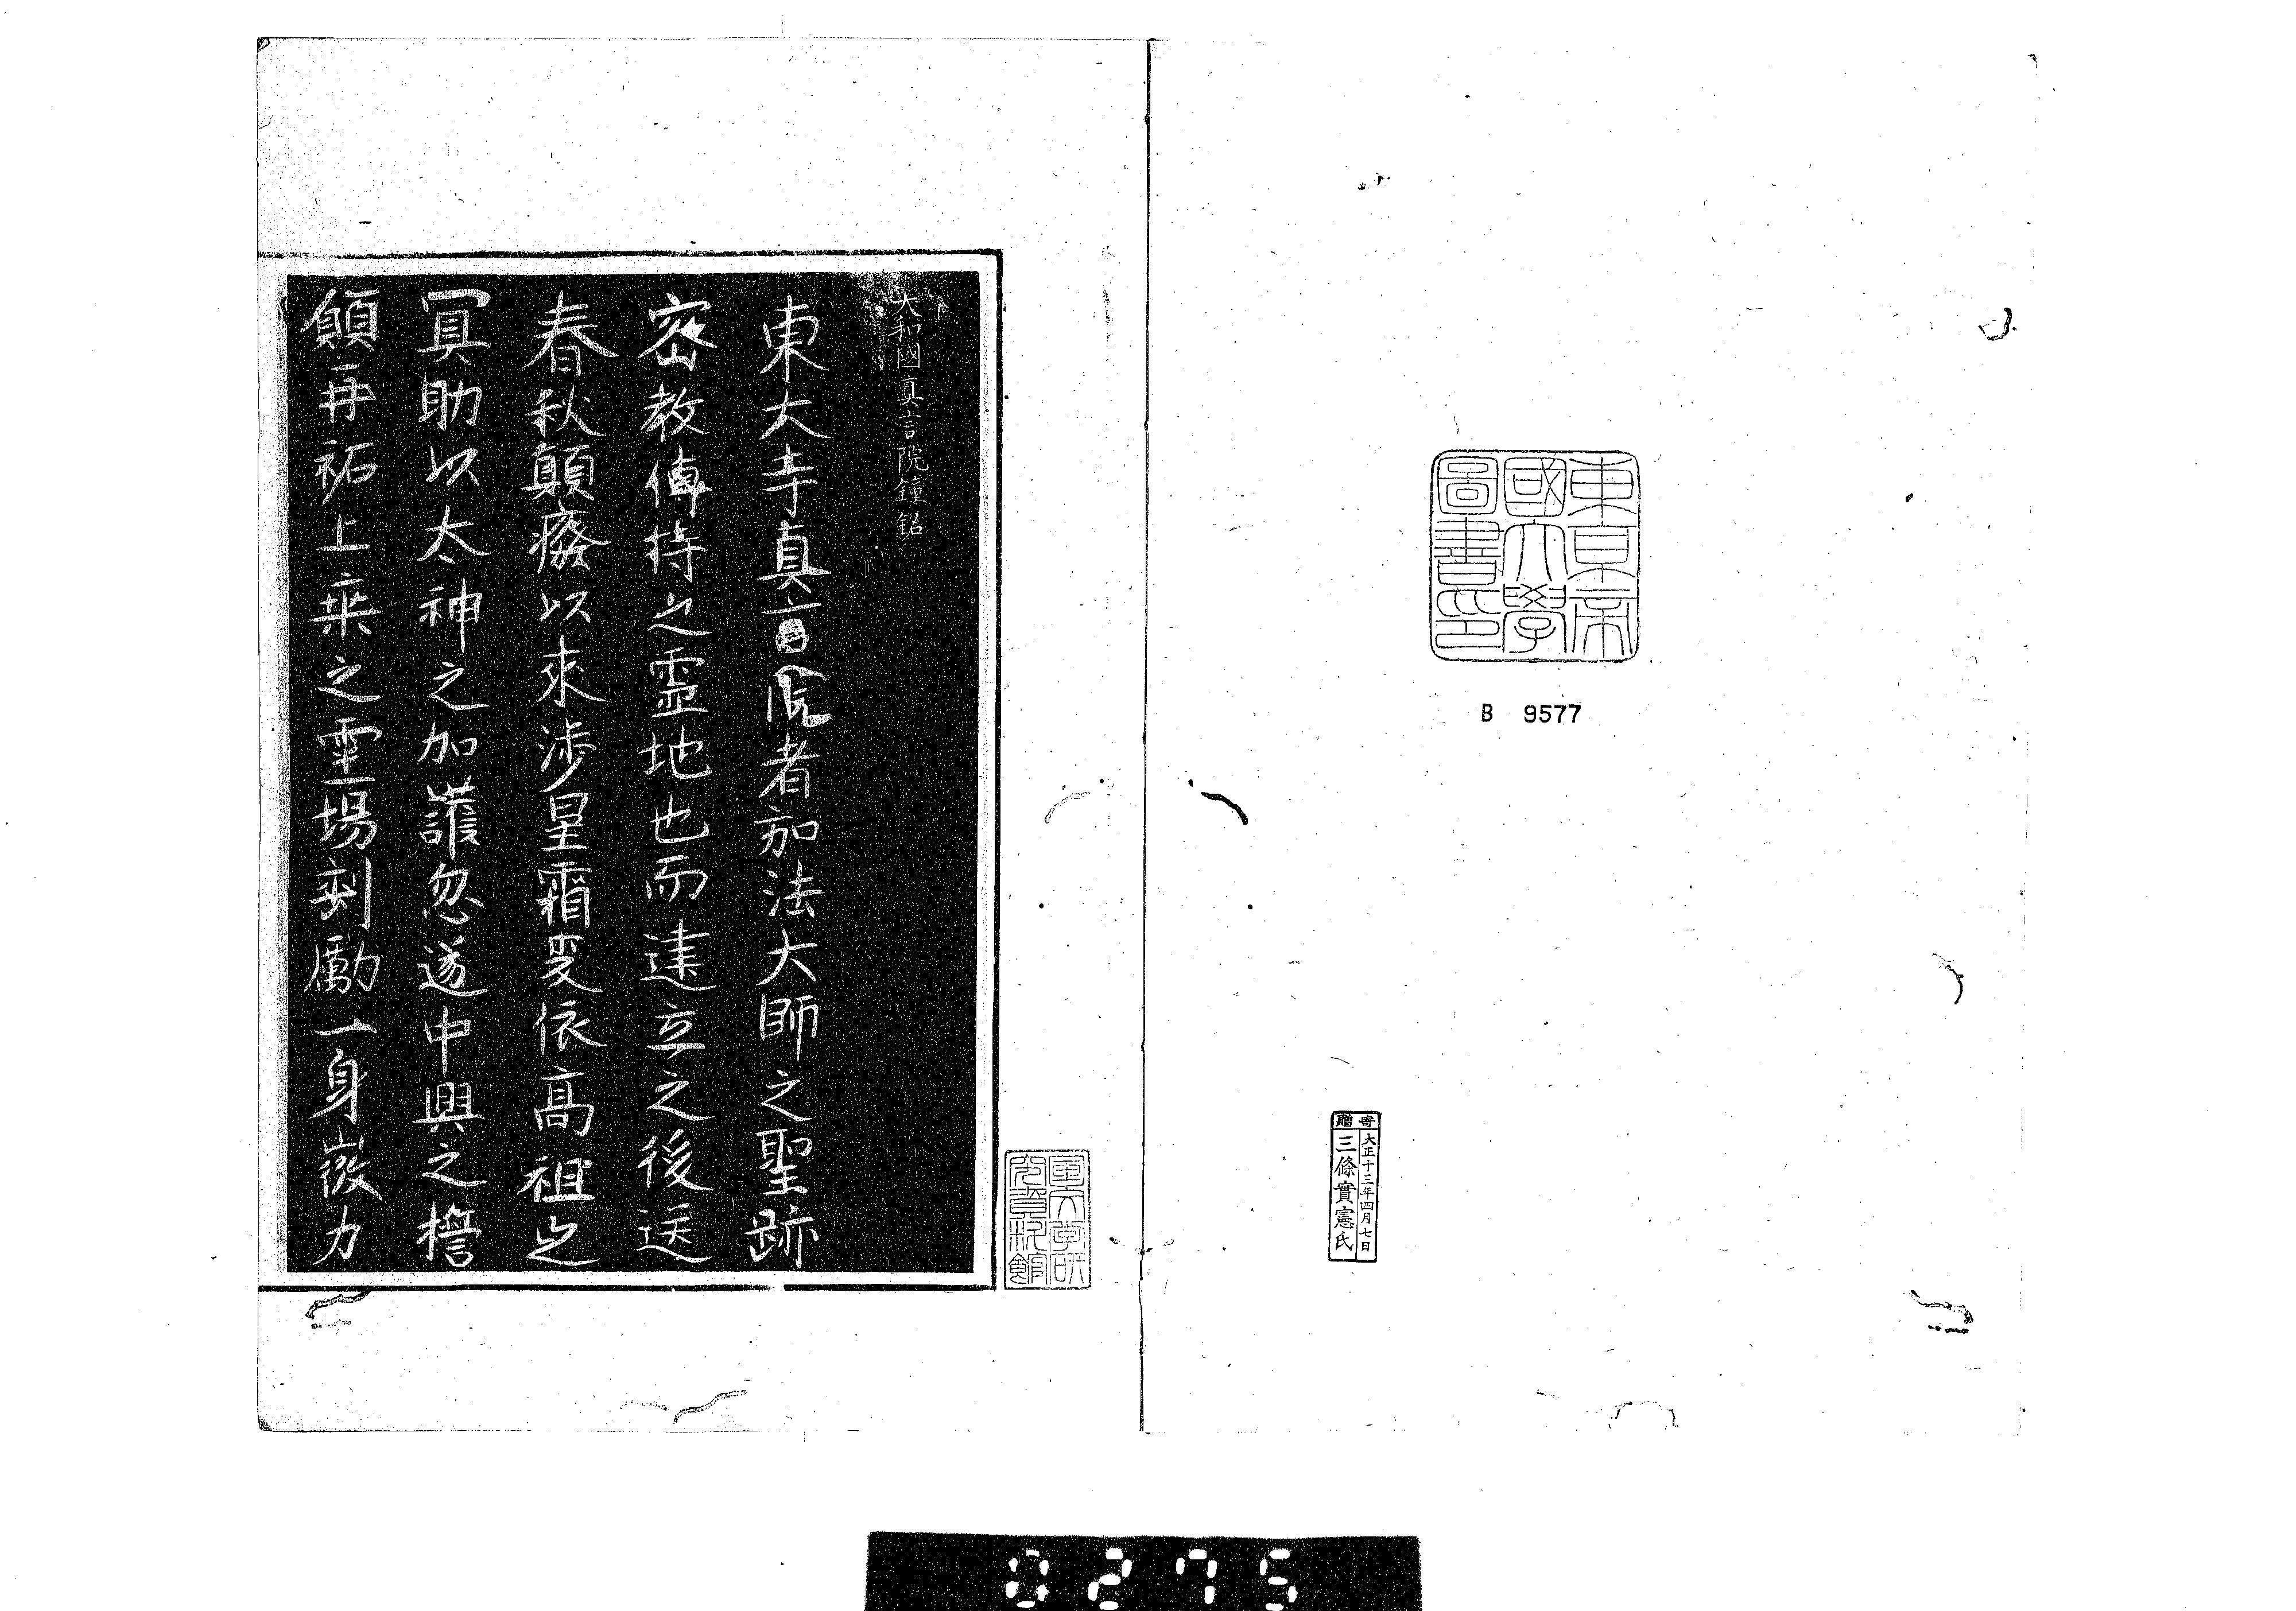 東京帝
國大學
圖書印
B 9577
寄贈
大正十三年四月七日
三條實憲氏
國文学研
究資料館
大和國真言院鐘銘
東大寺真言院者弘法大師之聖跡
密教傳持之靈地也而建立之後送
春秋顛癈以來渉星霜変依高祖之
冥助以太神之加護忽遂中興之櫓
願再祐上乗之靈場剋勵一身微力
0275